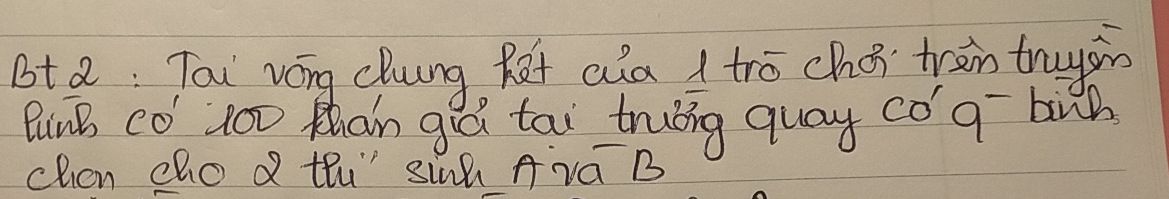 Bt 2 : Tại vòng chung kết của 1 trò chơi trên truyền
hình có 100 khán giả tại trường quay có q- bình
chọn cho 2 thí sinh A và B